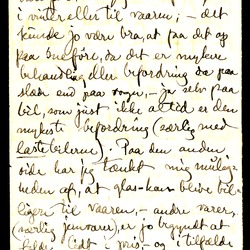 i vinter eller til vaaren; – det
kunde jo være bra, at faa det op
paa sneføre, da det er mykere
behandling eller befordring da paa
slæde end paa vogn, – ja selv paa
bil, som just ikke altid er den
mykeste befordring (særlig med
lastebilerne). Paa den anden
side har jeg tænkt mig mulig-
heden af, at glas-kan blive bil-
ligere til vaaren, – andre varer,
(særlig jernvarer), er jo begyndt at
falde lidt i pris, – og i tilfælde